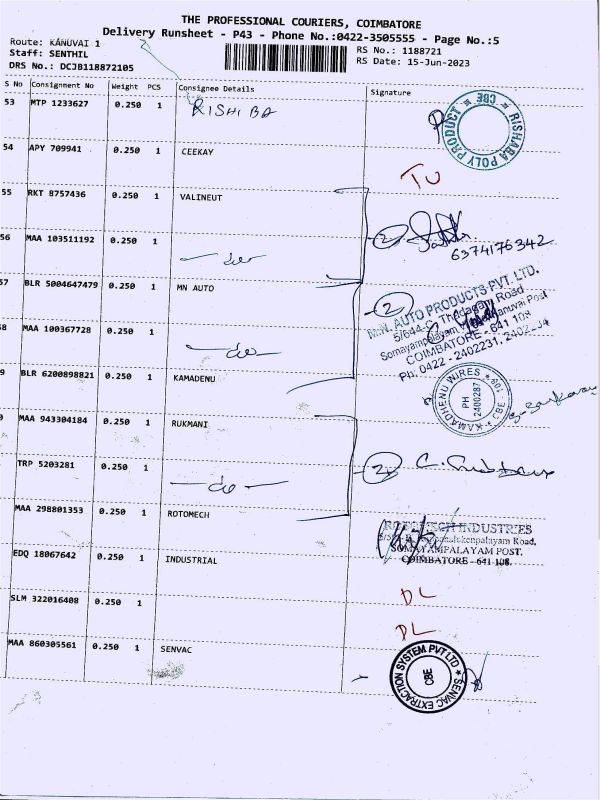 THE PROFESSIONAL COURIERS, COIMBATORE
Delivery Runsheet - P43 - Phone No.:0422-3505555 - Page No.:5
Route: KANUVAI 1
Staff: SENTHIL
DRS No.: DCJB118872105
RS No.: 1188721
RS Date: 15-Jun-2023
S No Consignment No Weight PCS Consignee Details Signature
53 MTP 1233627 0.250 1 RISHIBA
RISHABA POLY PRODUCT * CBE *
54 APY 709941 0.250 1 CEEKAY
TU
55 RKT 8757436 0.250 1 VALINEUT
56 MAA 103511192 0.250 1 -do-
2
6374176342
57 BLR 5004647479 0.250 1 MN AUTO
2
M.N. AUTO PRODUCTS PVT. LTD.
5/644-, Thadagam Road
Somayampalayam Kanuvai Post
COIMBATORE - 641 108
Ph: 0422 - 2402231,
8 MAA 100367728 0.250 1 -do-
9 BLR 6200898821 0.250 1 KAMADENU
* KAMADHENU WIRES * CBE - 109
PH
2400287
MAA 943304184 0.250 1 RUKMANI
TRP 5203281 0.250 1 -do-
2
MAA 298801353 0.250 1 ROTOMECH
ROTOTECH INDUSTRIES
Road,
SOMAYAMPALAYAM POST.
COIMBATORE - 641 108.
EDQ 18067642 0.250 1 INDUSTRIAL
DL
SLM 322016408 0.250 1
DL
MAA 860305561 0.250 1 SENVAC
SENVAC EXTRACTION SYSTEM PVT LTD
CBE